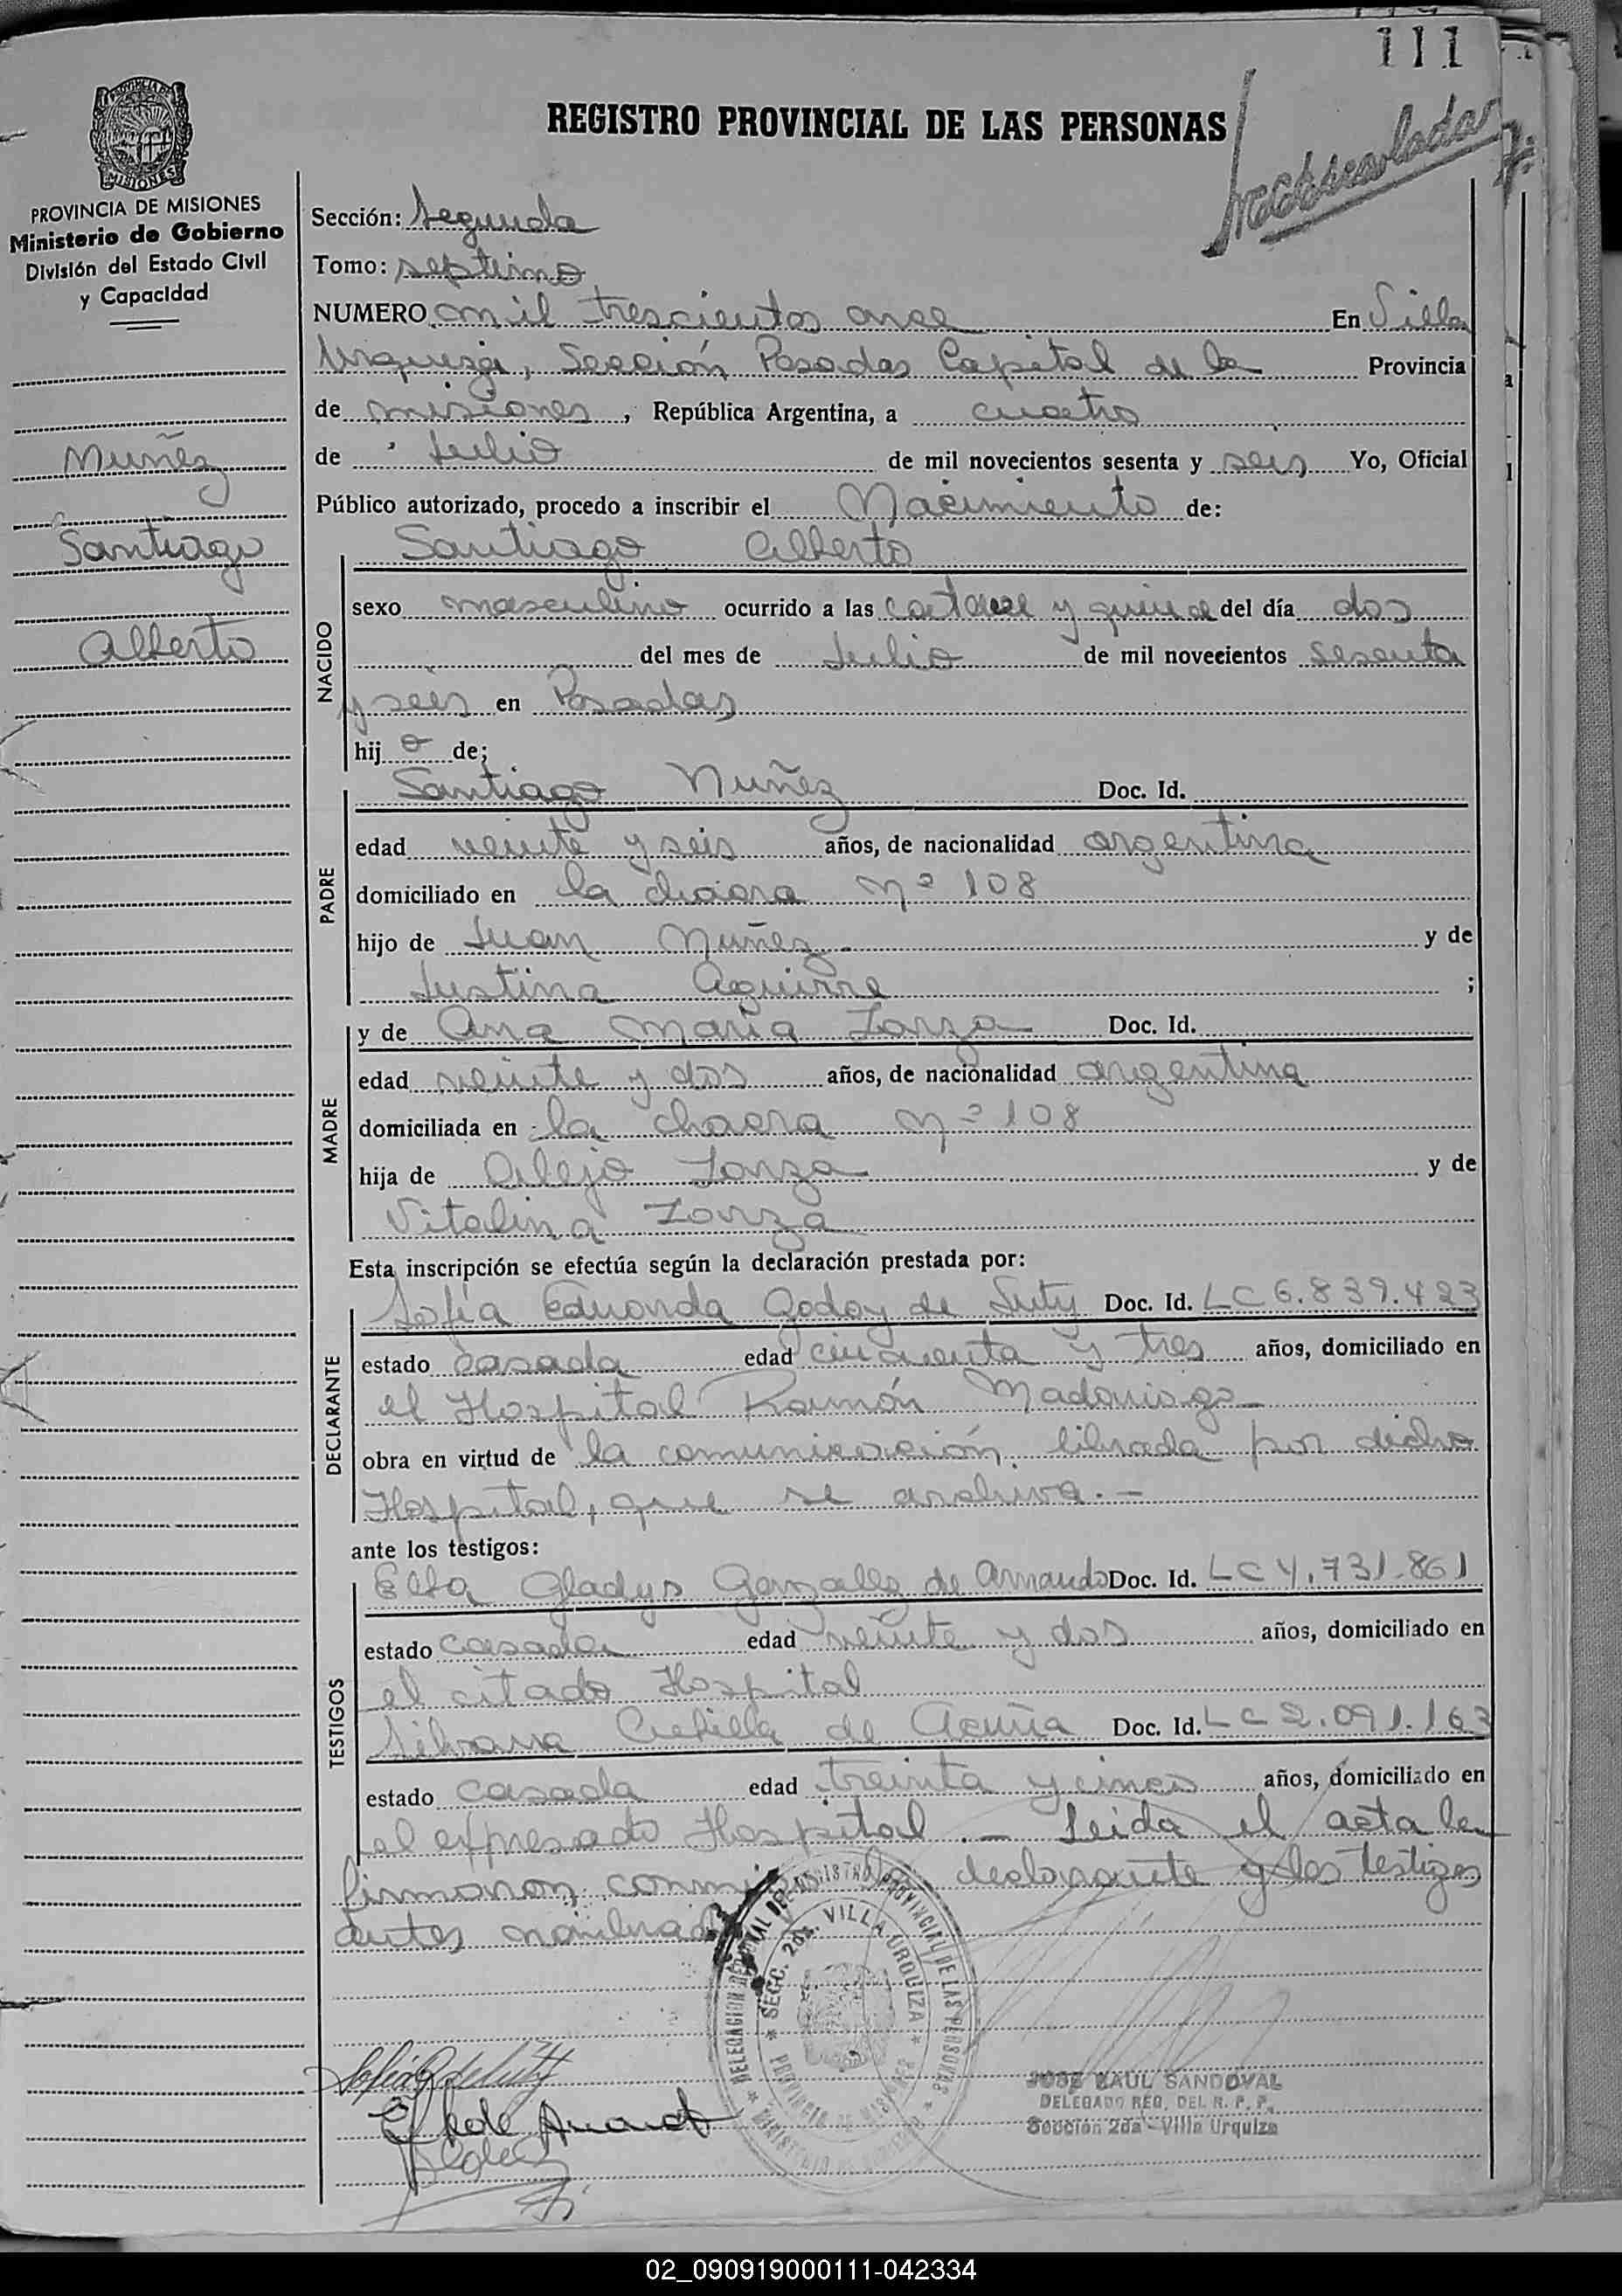 111
REGISTRO PROVINCIAL DE LAS PERSONAS
PROVINCIA DE MISIONES
Ministerio de Gobierno
División del Estado Civil
y Capacidad
Muñez
Santiago
Alberto
Sección: Segunda
Tomo: septimo
NUMERO mil trescientos once En Villa
Urquiza, Sección Posadas Capital de la Provincia
de misiones, República Argentina, a cuatro
de Julio de mil novecientos sesenta y seis Yo, Oficial
Público autorizado, procedo a inscribir el Nacimiento de:
Santiago Alberto
NACIDO
sexo masculino ocurrido a las catorce y quince del día dos
del mes de Julio de mil novecientos sesenta
y seis en Posadas
hij o de;
PADRE
Santiago Nuñez Doc. Id.
edad veinte y seis años, de nacionalidad argentina
domiciliado en la chacra Nº 108
hijo de Juan Nuñez.- y de
Justina Aguirre ;
MADRE
y de Ana Maria Zarza Doc. Id.
edad veinte y dos años, de nacionalidad argentina
domiciliada en la chacra Nº 108
hija de Alejo Zarza y de
Vitalina Zarza
Esta inscripción se efectúa según la declaración prestada por:
DECLARANTE
Sofía Eduarda Godoy de Doc. Id. LC 6.839.423
estado casada edad cincuenta y tres años, domiciliado en
el Hospital Ramón Madariaga
obra en virtud de la comunicación librada por dicho
Hospital, que se archiva.-
ante los testigos:
TESTIGOS
Elba Gladys Gonzalez de Armando Doc. Id. LC 4.731.861
estado casada edad veinte y dos años, domiciliado en
el citado Hospital
Silvana de Acuña Doc. Id. LC 2.091.163
estado casada edad treinta y cinco años, domiciliado en
el expresado Hospital.- Leida el acta la
firmaron conmigo la declarante y los testigos
antes nombrad
DELEGACION REGIONAL DEL REGISTRO PROVINCIAL DE LAS PERSONAS
SECC. 2da. VILLA URQUIZA
PROVINCIA DE MISIONES
MINISTERIO DE GOBIERNO
JOSE RAUL SANDOVAL
DELEGADO REG. DEL R. P. P.
Sección 2da - Villa Urquiza
02_090919000111-042334